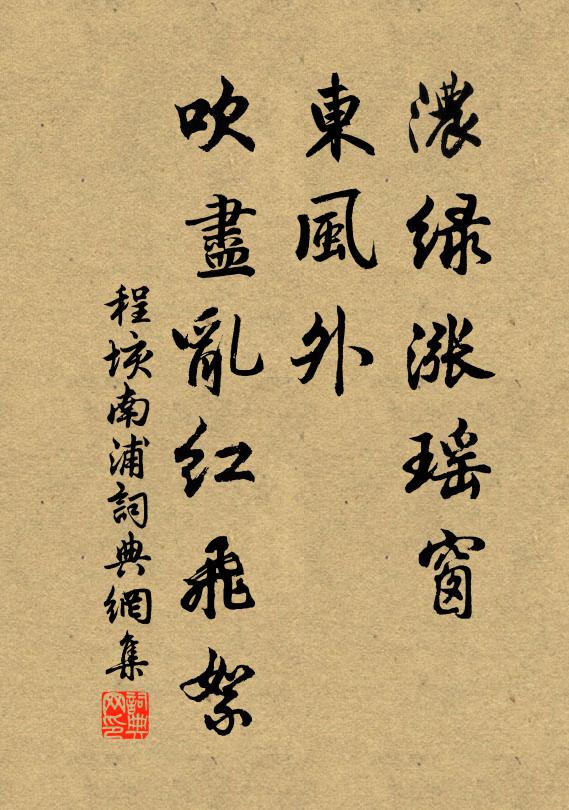 濃綠漲瑤窗
東風外
吹盡亂紅飛絮
程垓南浦詞典網集
詞典网印